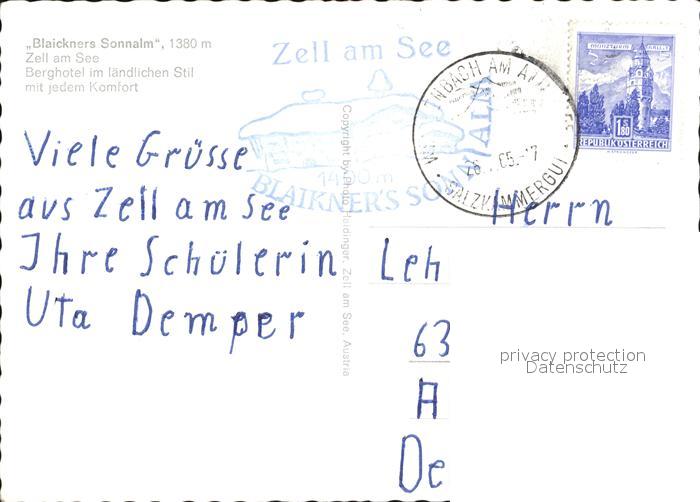 „Blaickners Sonnalm", 1380 m
Zell am See
Berghotel im ländlichen Stil
mit jedem Komfort
Zell am See
1400 m
BLAIKNER'S SONNALM
AM
SALZKAMMERGUT
1 S 80
REPUBLIK ÖSTERREICH
Copyright by Photo Haidinger, Zell am See, Austria
Viele Grüsse
aus Zell am See
Ihre Schülerin
Uta Demper
Herrn
Leh
63
A
De
privacy protection
Datenschutz